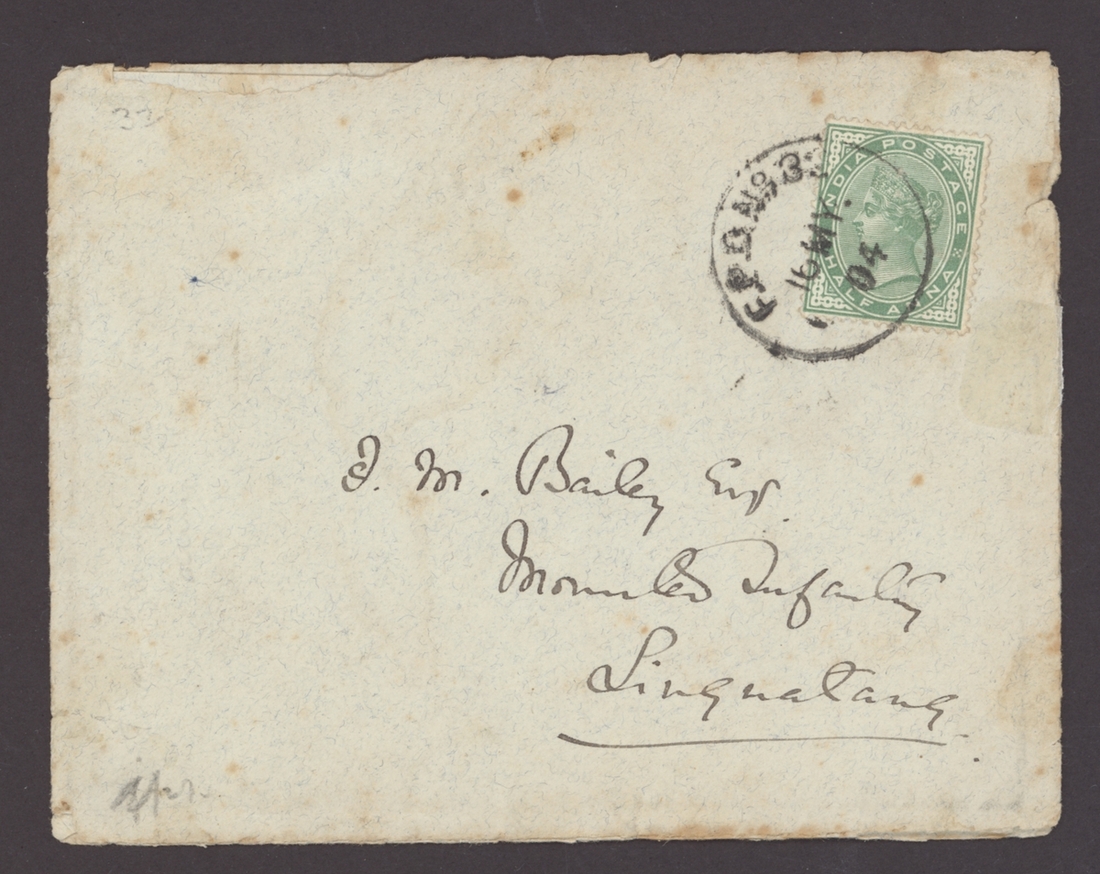 33
INDIA POSTAGE
HALF ANNA
F.P.O. No. 33
16 MY.
04
F. M. Bailey Esq.
Mounted Infantry
Lingmatang